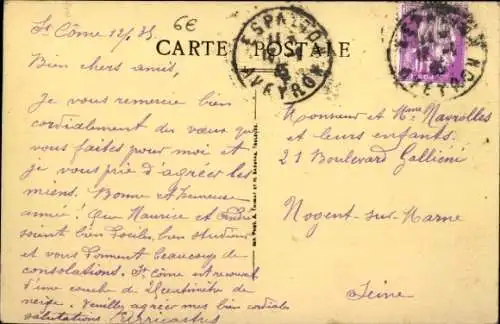 St Côme 12/35
6€
CARTE POSTALE
ESPALION
AVEYRON
ESPALION
AVEYRON
Bien chers amis,
Je vous remercie bien
cordialement des vœux que
vous faites pour moi et
je vous prie d'agréer les
miens. Bonne et heureuse
année! Que Maurice et André
soient bien dociles, bien studieux
et vous donnent beaucoup de
consolations. St Côme est recouvert
d'une couche de centimètres de
neige. Veuillez agréer mes bien cordiales
salutations
Monsieur et Mme Mavrolles
et leurs enfants.
21 Boulevard Galliéni
Nogent-sur-Marne
Seine